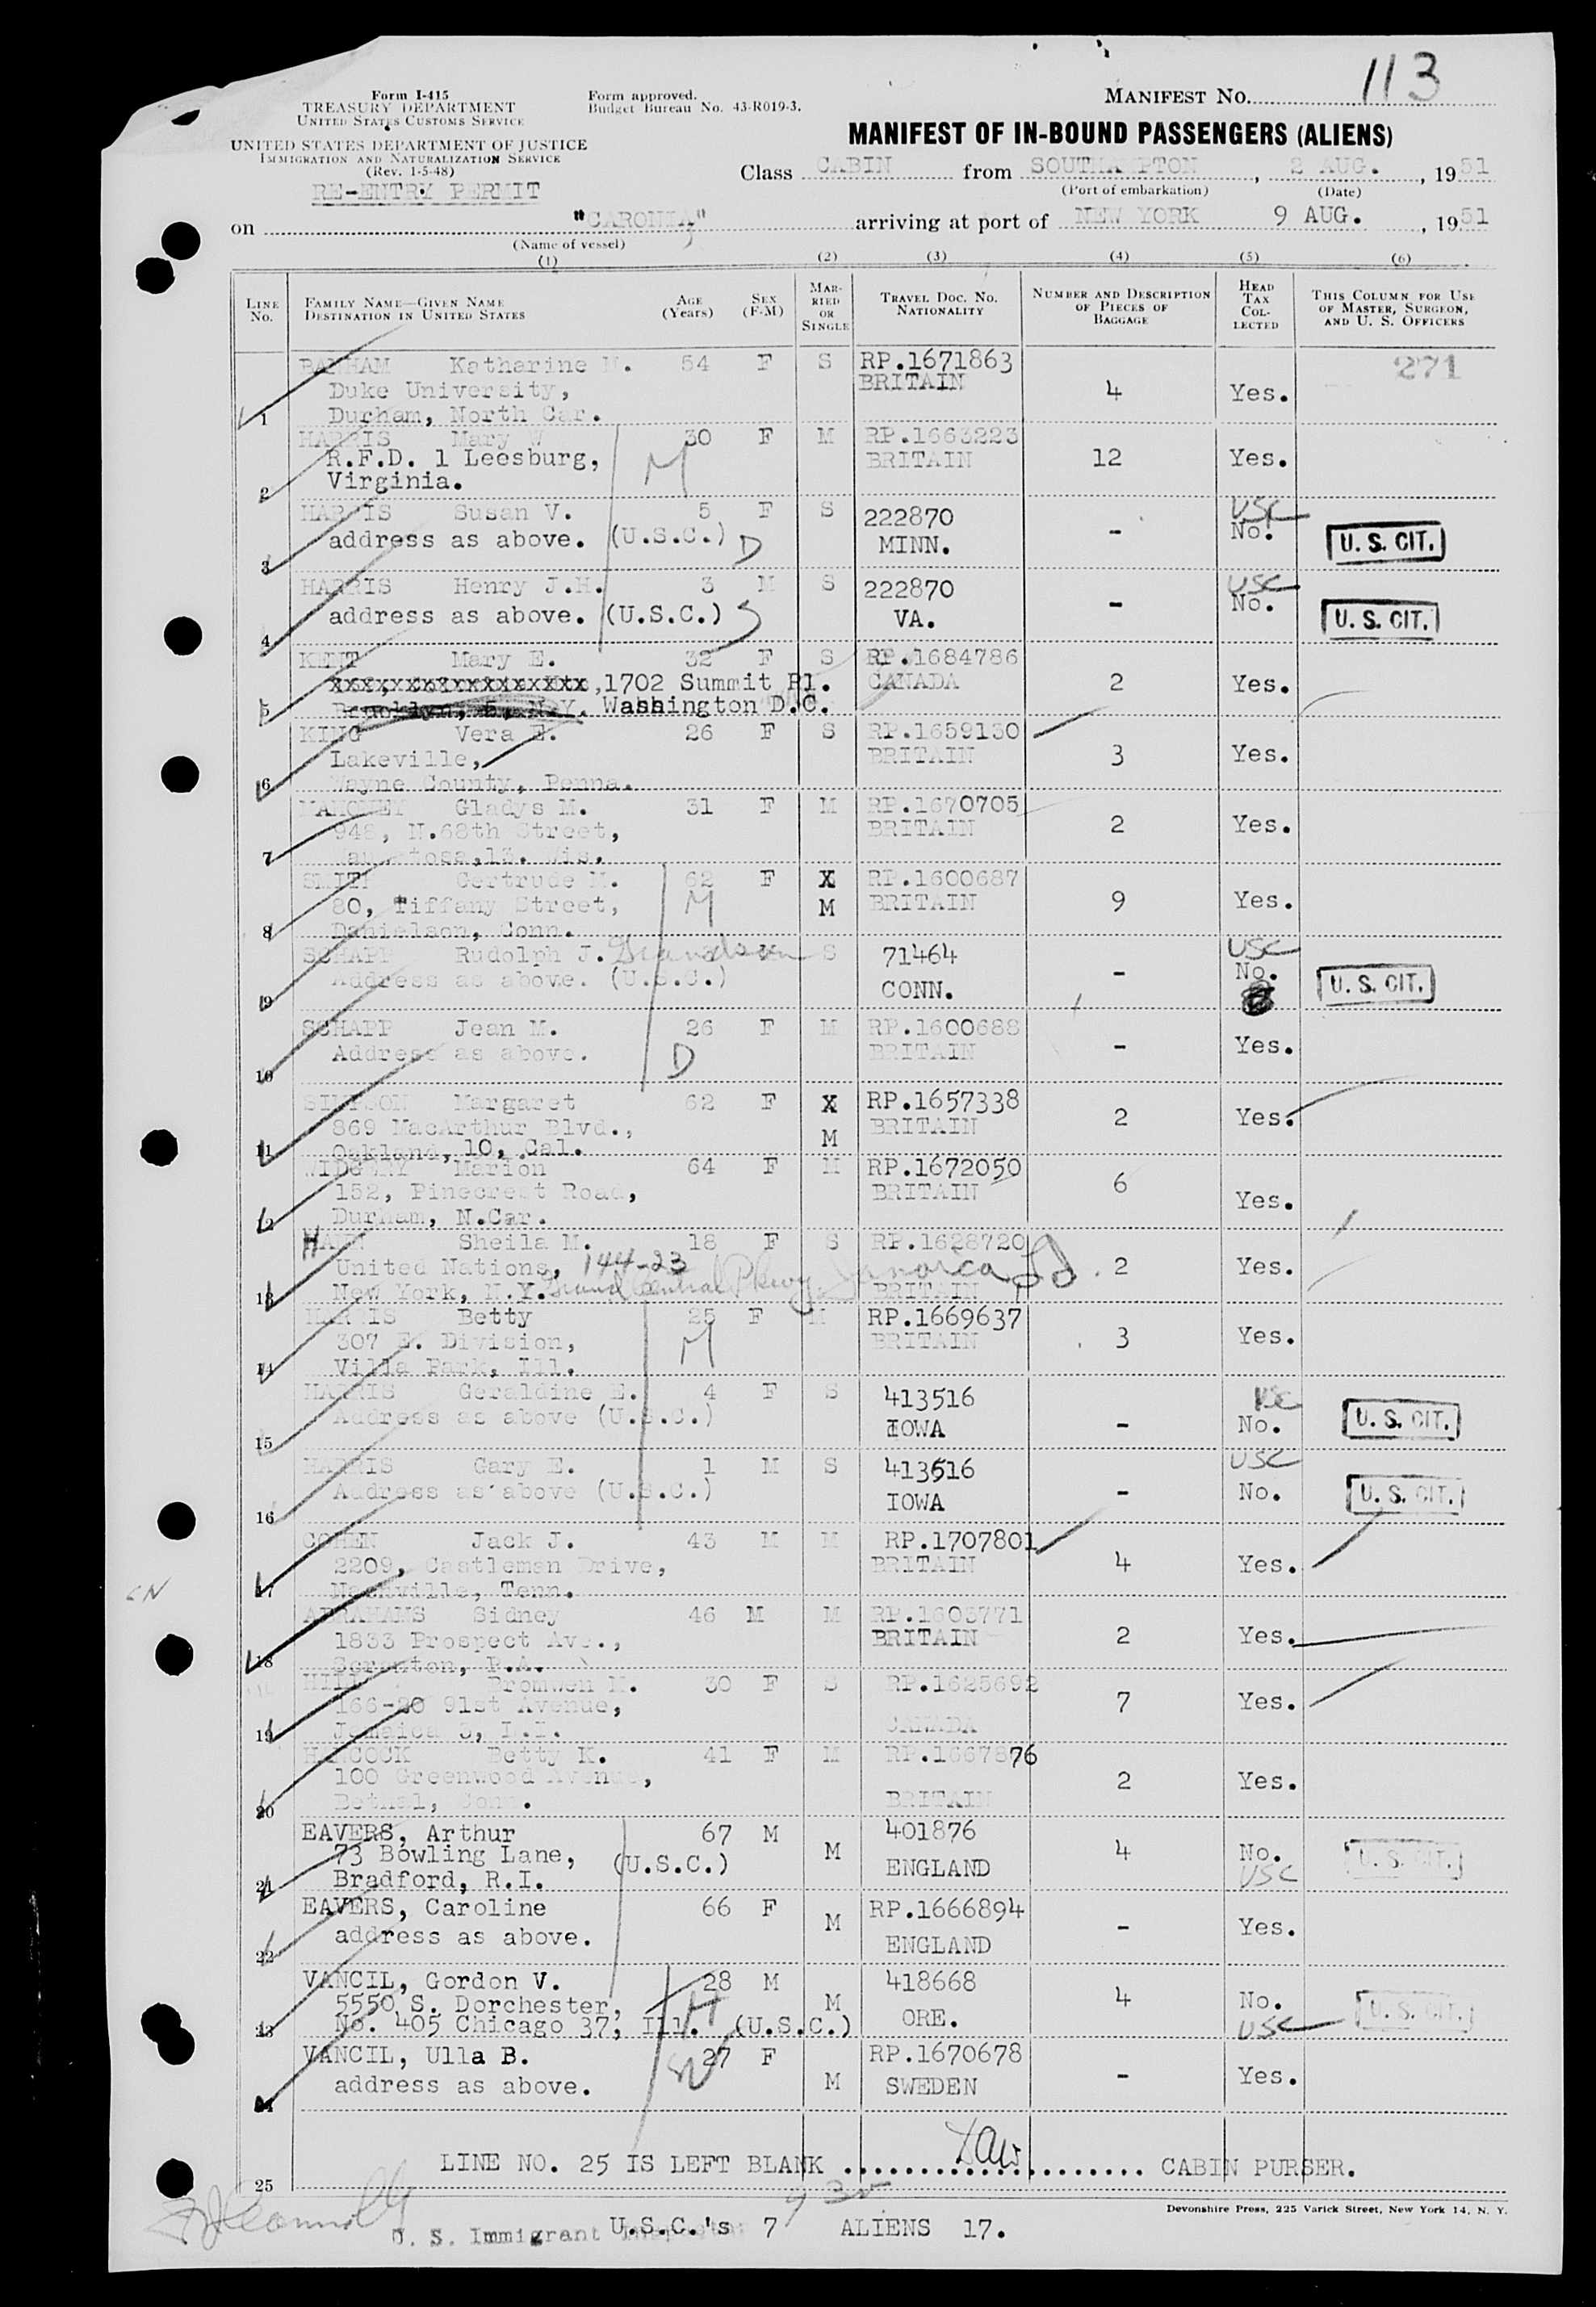 113
Form I-415
TREASURY DEPARTMENT
UNITED STATES CUSTOMS SERVICE
Form approved.
Budget Bureau No. 43-R019-3.
MANIFEST No.
UNITED STATES DEPARTMENT OF JUSTICE
IMMIGRATION AND NATURALIZATION SERVICE
(Rev. 1-5-48)
RE-ENTRY PERMIT
MANIFEST OF IN-BOUND PASSENGERS (ALIENS)
Class CABIN from SOUTHAMPTON, 2 AUG., 1951
(Port of embarkation) (Date)
on "CARONIA" arriving at port of NEW YORK 9 AUG., 1951
(Name of vessel)
(1) (2) (3) (4) (5) (6)
LINE No. FAMILY NAME—GIVEN NAME DESTINATION IN UNITED STATES AGE (Years) SEX (F-M) MARRIED OR SINGLE TRAVEL DOC. NO. NATIONALITY NUMBER AND DESCRIPTION OF PIECES OF BAGGAGE HEAD TAX COLLECTED THIS COLUMN FOR USE OF MASTER, SURGEON, AND U. S. OFFICERS
BANHAM Katharine M. 54 F S RP.1671863 271
Duke University, BRITAIN 4 Yes.
1 Durham, North Car.
HARRIS Mary W 30 F M RP.1663223
R.F.D. 1 Leesburg, M BRITAIN 12 Yes.
2 Virginia.
HARRIS Susan V. 5 F S 222870 USC
address as above. (U.S.C.) D MINN. - No. U. S. CIT.
3
HARRIS Henry J.H. 3 M S 222870 USC
address as above. (U.S.C.) S VA. - No. U. S. CIT.
4
KENT Mary E. 32 F S RP.1684786
1702 Summit Pl. CANADA 2 Yes.
5 Brooklyn, 5, N.Y. Washington D.C.
KING Vera E. 26 F S RP.1659130
Lakeville, BRITAIN 3 Yes.
6 Wayne County, Penna.
MAHONEY Gladys M. 31 F M RP.1670705
948, N.68th Street, BRITAIN 2 Yes.
7 Wauwatosa,13. Wis.
SMITH Gertrude M. 62 F X RP.1600687
80, Tiffany Street, M M BRITAIN 9 Yes.
8 Danielson, Conn.
SCHAPP Rudolph J. Grandson S 71464 USC
Address as above. (U.S.C.) CONN. - No. U. S. CIT.
9
SCHAPP Jean M. 26 F M RP.1600688
Address as above. D BRITAIN - Yes.
10
SIMPSON Margaret 62 F X RP.1657338
869 MacArthur Blvd., M BRITAIN 2 Yes.
11 Oakland, 10, Cal.
WIDGERY Marion 64 F M RP.1672050
152, Pinecrest Road, BRITAIN 6 Yes.
12 Durham, N.Car.
Sheila M. 18 F S RP.1628720
United Nations, 144-23 2 Yes.
13 New York, N.Y. Grand Central Pkwy. Jamaica BRITAIN
HARRIS Betty 25 F M RP.1669637
307 E. Division, M BRITAIN 3 Yes.
14 Villa Park, Ill.
HARRIS Geraldine E. 4 F S 413516 USC
Address as above (U.S.C.) IOWA - No. U. S. CIT.
15
HARRIS Gary E. 1 M S 413516 USC
Address as above (U.S.C.) IOWA - No. U. S. CIT.
16
COHEN Jack J. 43 M M RP.1707801
2209, Castleman Drive, BRITAIN 4 Yes.
17 Nashville, Tenn.
ABRAHAMS Sidney 46 M M RP.1603771
1833 Prospect Ave., BRITAIN 2 Yes.
18 Scranton, P.A.
HILL Bronwen M. 30 F S RP.1625692
166-20 91st Avenue, 7 Yes.
19 Jamaica 3, L.I. CANADA
HANCOCK Betty K. 41 F M RP.1667876
100 Greenwood Avenue, 2 Yes.
20 Bethel, Conn. BRITAIN
EAVERS, Arthur 67 M 401876
73 Bowling Lane, (U.S.C.) M 4 No. U. S. CIT.
21 Bradford, R.I. ENGLAND USC
EAVERS, Caroline 66 F M RP.1666894
address as above. ENGLAND - Yes.
22
VANCIL, Gordon V. 28 M 418668
5550 S. Dorchester, H M 4 No. U. S. CIT.
23 No. 405 Chicago 37, Ill. (U.S.C.) ORE. USC
VANCIL, Ulla B. 27 F RP.1670678
address as above. W M SWEDEN - Yes.
24
25 LINE NO. 25 IS LEFT BLANK .................... CABIN PURSER.
Devonshire Press, 225 Varick Street, New York 14, N. Y.
U. S. Immigrant U.S.C.'s 7 ALIENS 17.